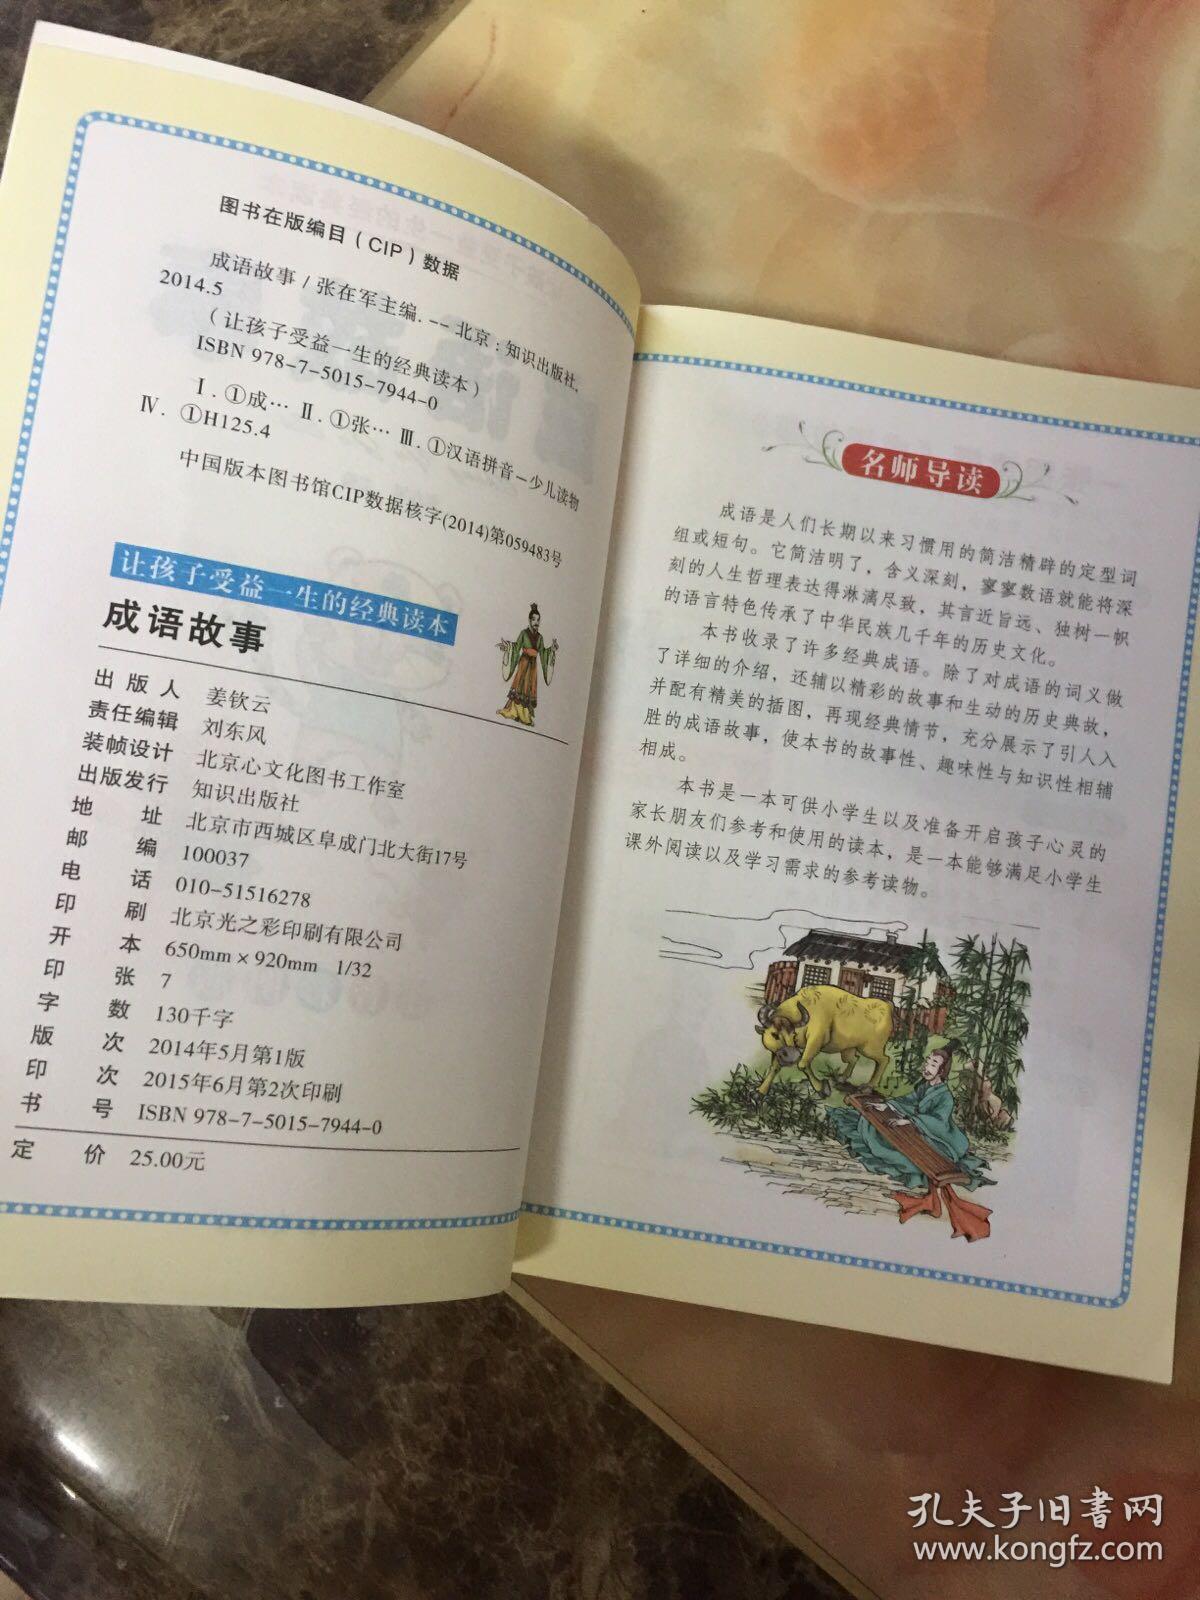 图书在版编目（CIP）数据
成语故事 / 张在军主编. -- 北京：知识出版社,
2014.5
（让孩子受益一生的经典读本）
ISBN 978-7-5015-7944-0
Ⅰ. ①成… Ⅱ. ①张… Ⅲ. ①汉语拼音-少儿读物
Ⅳ. ①H125.4
中国版本图书馆CIP数据核字(2014)第059483号
让孩子受益一生的经典读本
成语故事
出版人 姜钦云
责任编辑 刘东风
装帧设计 北京心文化图书工作室
出版发行 知识出版社
地 址 北京市西城区阜成门北大街17号
邮 编 100037
电 话 010-51516278
印 刷 北京光之彩印刷有限公司
开 本 650mm×920mm 1/32
印 张 7
字 数 130千字
版 次 2014年5月第1版
印 次 2015年6月第2次印刷
书 号 ISBN 978-7-5015-7944-0
定 价 25.00元
名师导读
成语是人们长期以来习惯用的简洁精辟的定型词
组或短句。它简洁明了，含义深刻，寥寥数语就能将深
刻的人生哲理表达得淋漓尽致，其言近旨远、独树一帜
的语言特色传承了中华民族几千年的历史文化。
本书收录了许多经典成语。除了对成语的词义做
了详细的介绍，还辅以精彩的故事和生动的历史典故，
并配有精美的插图，再现经典情节，充分展示了引人入
胜的成语故事，使本书的故事性、趣味性与知识性相辅
相成。
本书是一本可供小学生以及准备开启孩子心灵的
家长朋友们参考和使用的读本，是一本能够满足小学生
课外阅读以及学习需求的参考读物。
孔夫子旧書网
www.kongfz.com